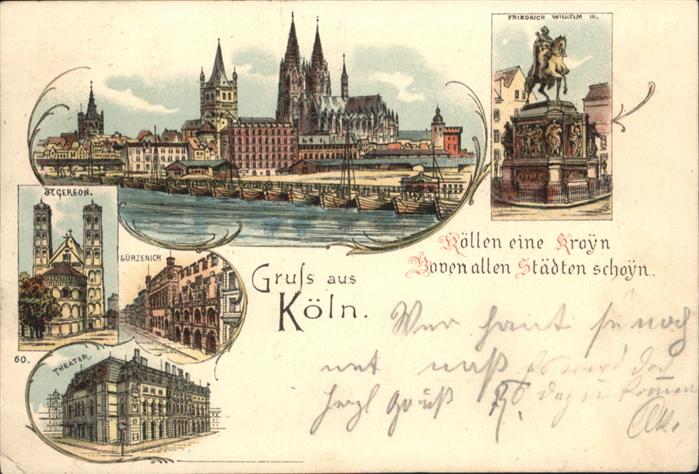 FRIEDRICH WILHELM III.
ST. GEREON.
GÜRZENICH
Köllen eine Kroÿn
Boven allen Städten schoÿn.
Gruſs aus
Köln.
60.
THEATER.
Wer haut so noch
net naß
herzl Gruß